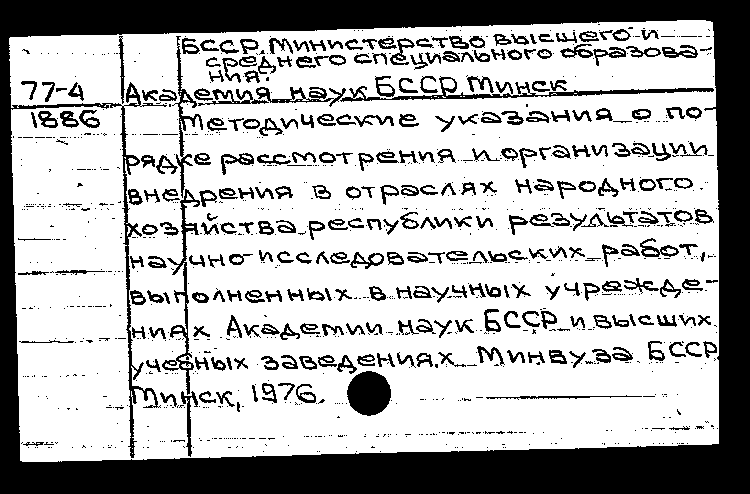 БССР. Министерство высшего и
среднего специального образова-
ния.
77-4 Академия наук БССР Минск
1886 Методические указания о по-
рядке рассмотрения и организации
внедрения в отраслях народного
хозяйства республики результатов
научно-исследовательских работ,
выполненных в научных учрежде-
ниях Академии наук БССР и высших
учебных заведениях Минвуза БССР
Минск, 1976.